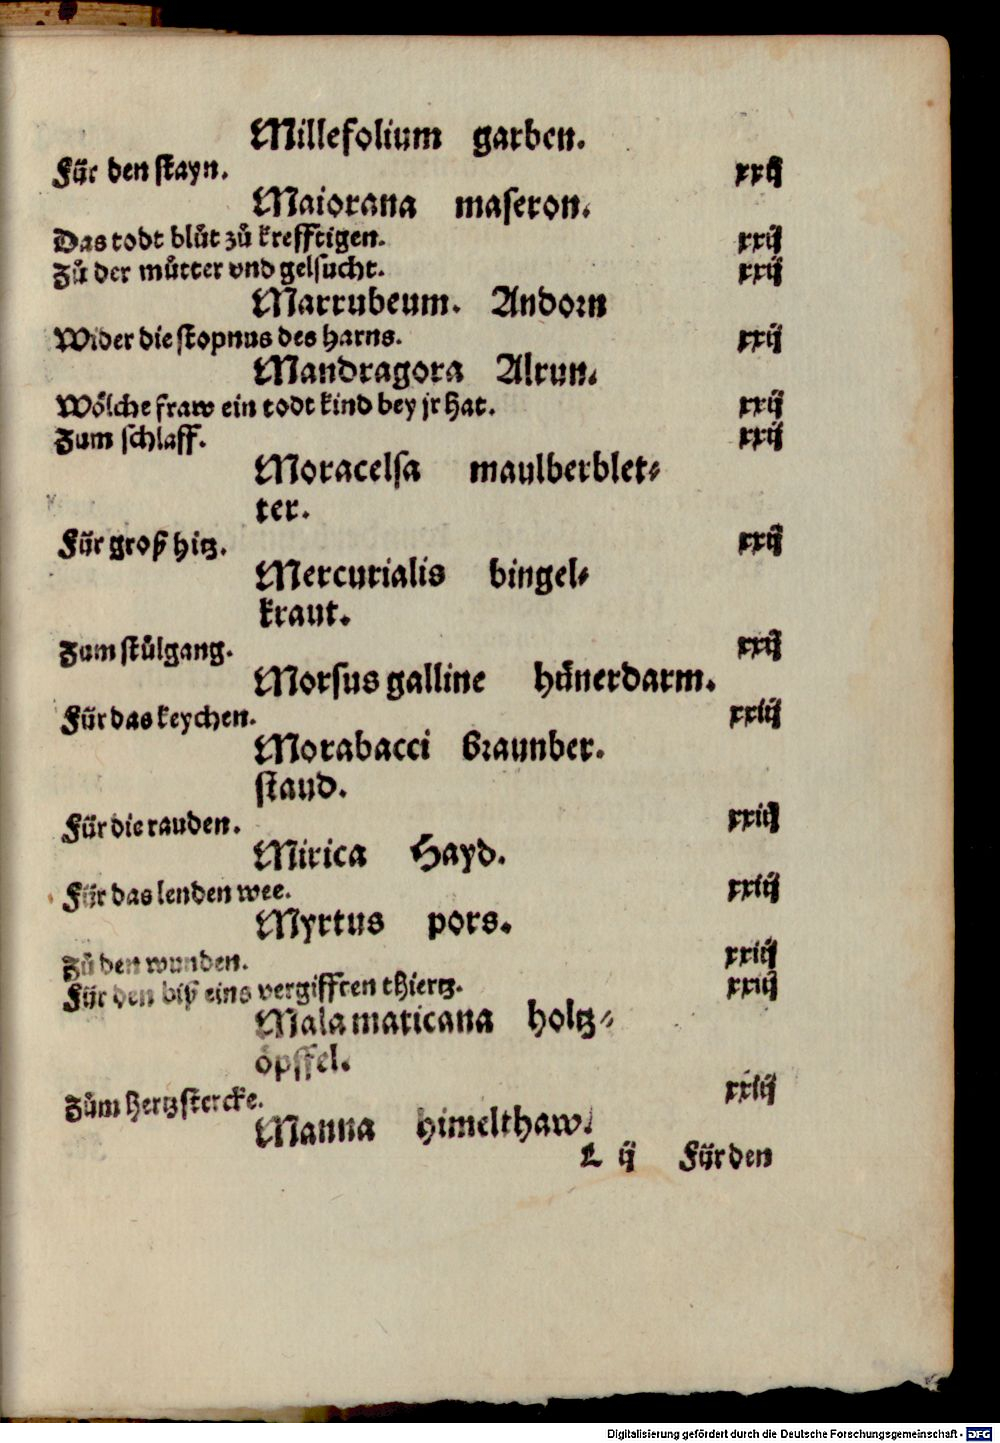 Millefolium garben.
Für den stayn. xxij
Maiorana maseron.
Das todt blůt zů krefftigen. xxij
Zů der můtter vnd gelsucht. xxij
Marrubeum. Andorn
Wider die stopnus des harns. xxij
Mandragora Alrun.
Wölche fraw ein todt kind bey jr hat. xxij
Zum schlaff. xxij
Moracelsa maulberblet-
ter.
Für groß hitz. xxij
Mercurialis bingel-
kraut.
Zum stůlgang. xxij
Morsus galline hünerdarm.
Für das keychen. xxiij
Morabacci Braunber.
staud.
Für die rauden. xxiij
Mirica Hayd.
Für das lenden wee. xxiij
Myrtus pors.
Zů den wunden. xxiij
Für den biß eins vergifften thiertz. xxiij
Mala maticana holtz-
öpffel.
Zům hertzstercke. xxiij
Manna himelthaw.
L ij Für den
Digitalisierung gefördert durch die Deutsche Forschungsgemeinschaft - DFG